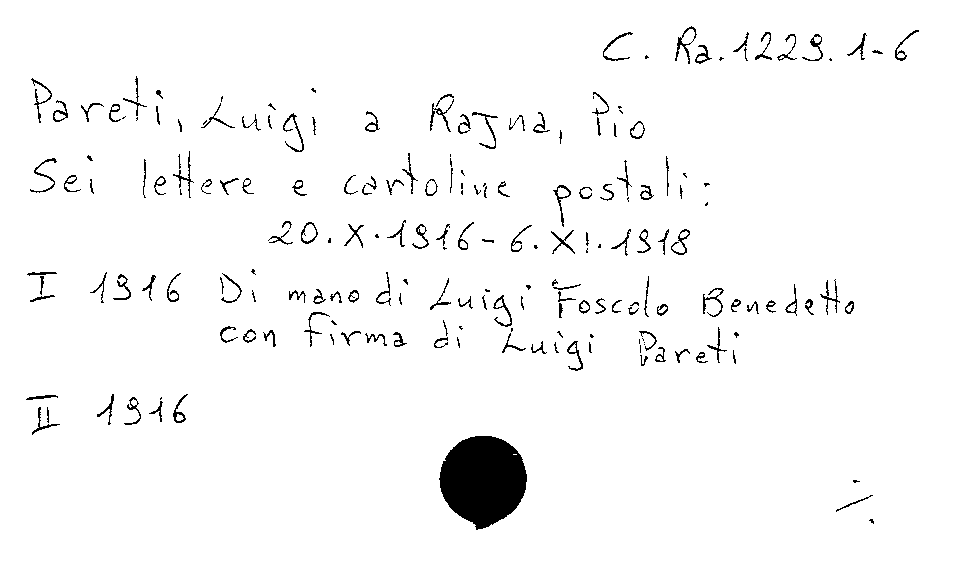 C. Ra. 1229. 1-6
Pareti, Luigi a Rajna, Pio
Sei lettere e cartoline postali:
20.X.1916-6.XI.1918
I 1916 Di mano di Luigi Foscolo Benedetto
con firma di Luigi Pareti
II 1916
./.